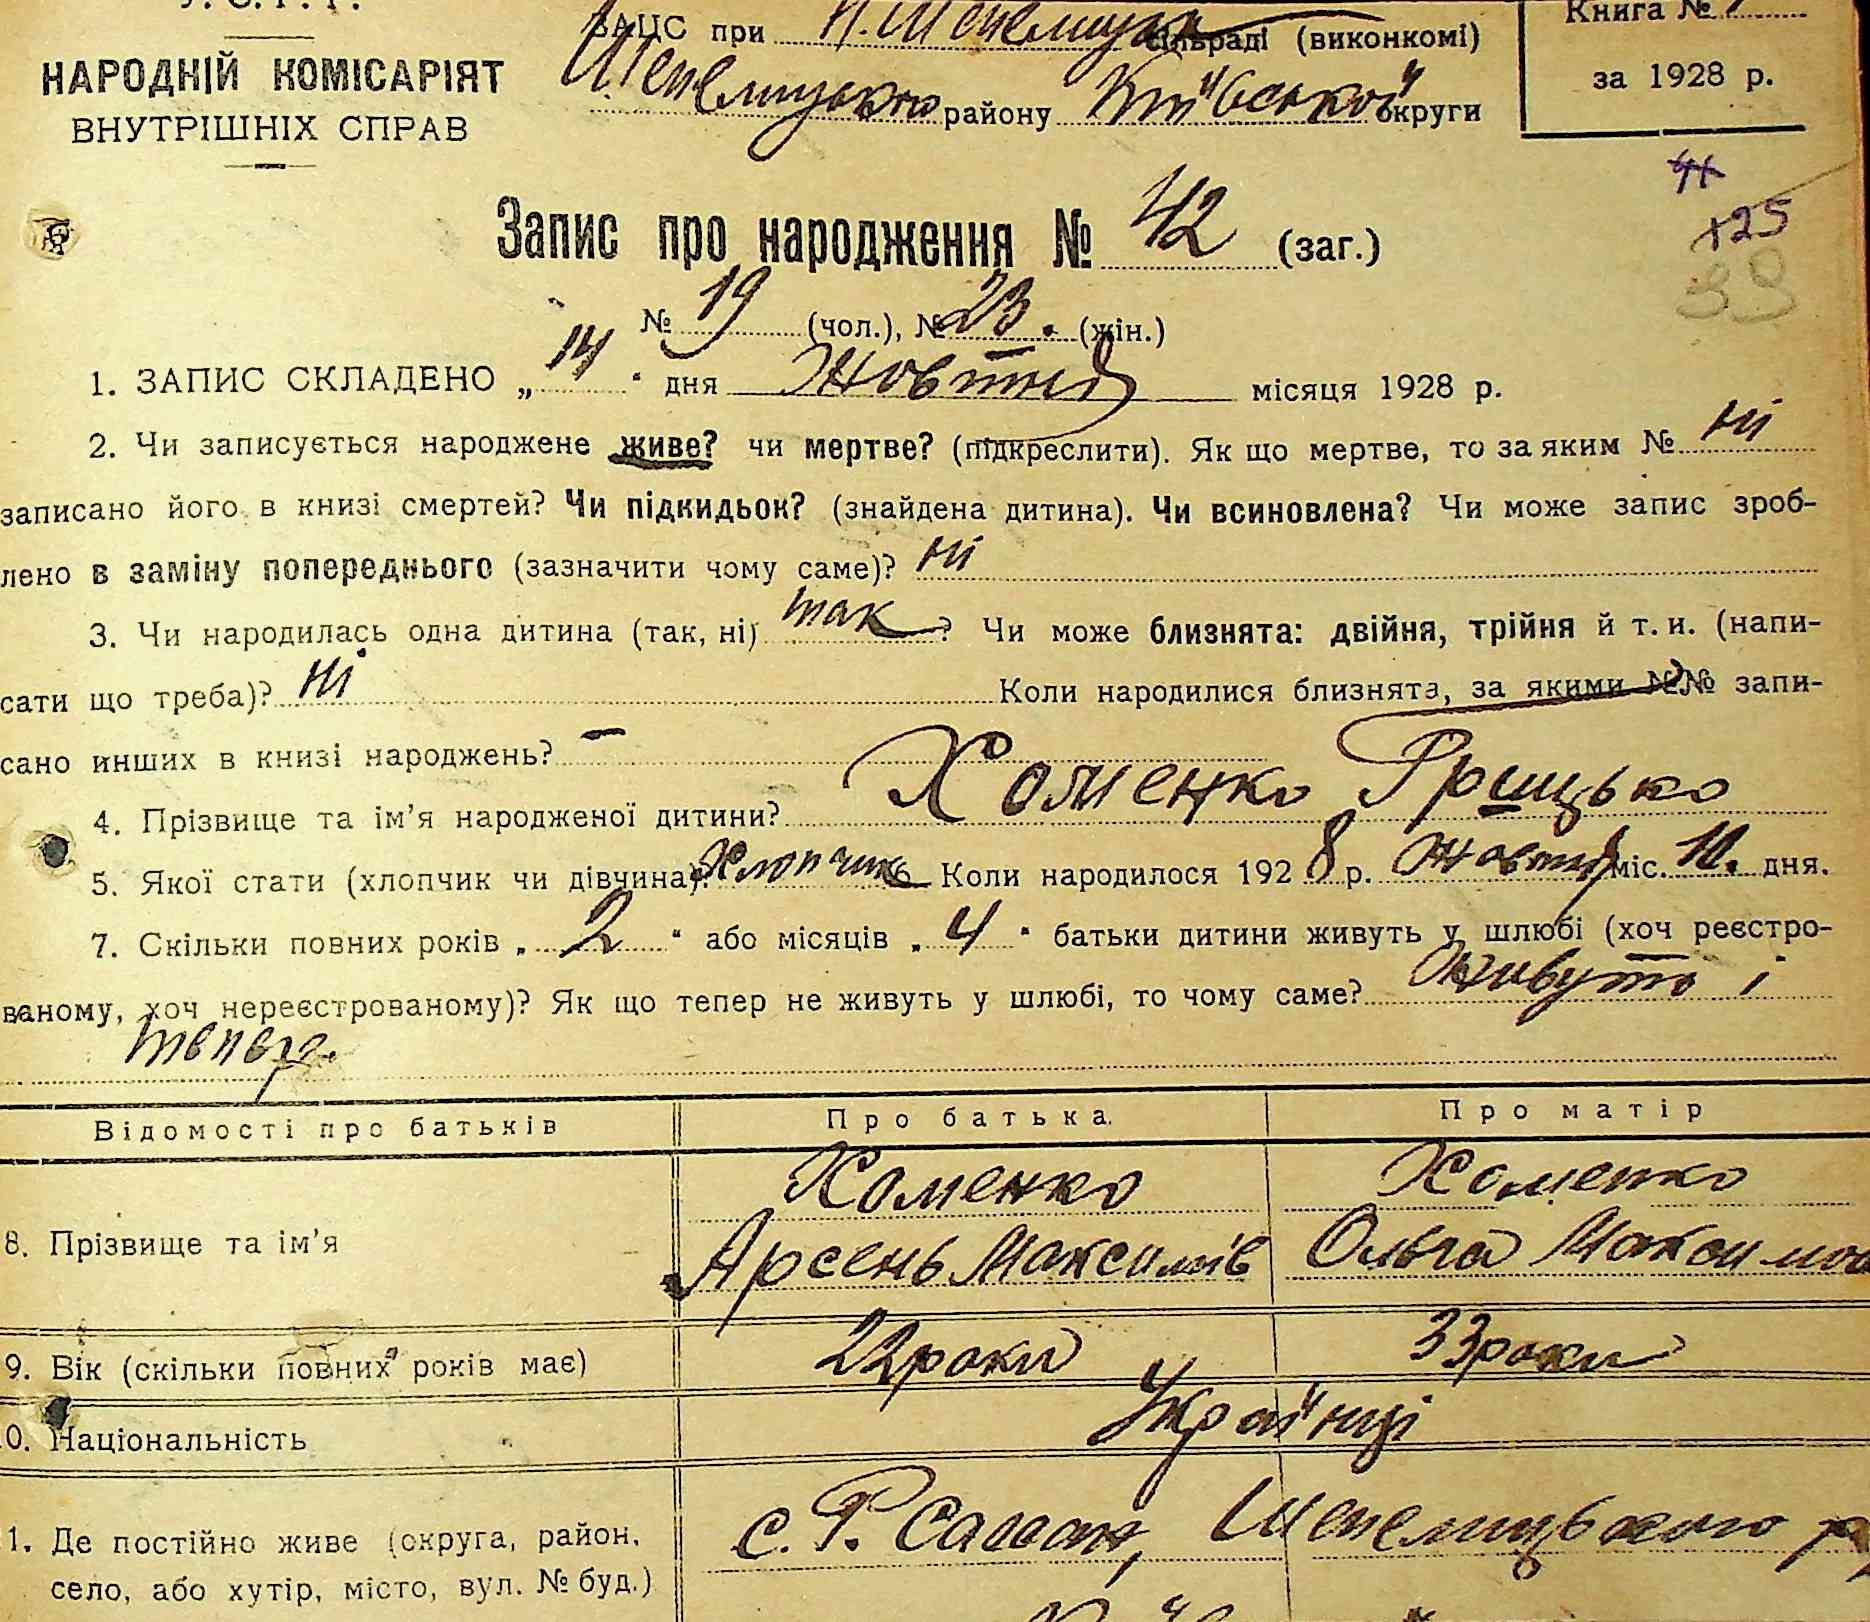 У.С.Р.Р.
НАРОДНІЙ КОМІСАРІЯТ
ВНУТРІШНІХ СПРАВ
ЗАЦС при сільраді (виконкомі)
району Київської округи
Книга №
за 1928 р.
41
125
39
Запис про народження № 42 (заг.)
№ 19 (чол.), № 23. (жін.)
1. ЗАПИС СКЛАДЕНО „ 14 “ дня Жовтня місяця 1928 р.
2. Чи записується народжене живе? чи мертве? (підкреслити). Як що мертве, то за яким № Ні
записано його в книзі смертей? Чи підкидьок? (знайдена дитина). Чи всиновлена? Чи може запис зроб-
лено в заміну попереднього (зазначити чому саме)? Ні
3. Чи народилась одна дитина (так, ні) так ? Чи може близнята: двійня, трійня й т. и. (напи-
сати що треба)? Ні Коли народилися близнята, за якими №№ запи-
сано инших в книзі народжень? —
4. Прізвище та ім’я народженої дитини? Хоменко Грицько
5. Якої стати (хлопчик чи дівчина)? Хлопчик Коли народилося 1928 р. Жовтня міс. 10. дня.
7. Скільки повних років „ 2 “ або місяців „ 4 “ батьки дитини живуть у шлюбі (хоч реєстро-
ваному, хоч нереєстрованому)? Як що тепер не живуть у шлюбі, то чому саме? Живуть і
тепер.
Відомості про батьків Про батька Про матір
Хоменко Хоменко
8. Прізвище та ім’я Арсень Максимів Ольга
9. Вік (скільки повних років має) 22 роки 33 роки
0. Національність Українці
1. Де постійно живе (округа, район, с.
село, або хутір, місто, вул. № буд.)